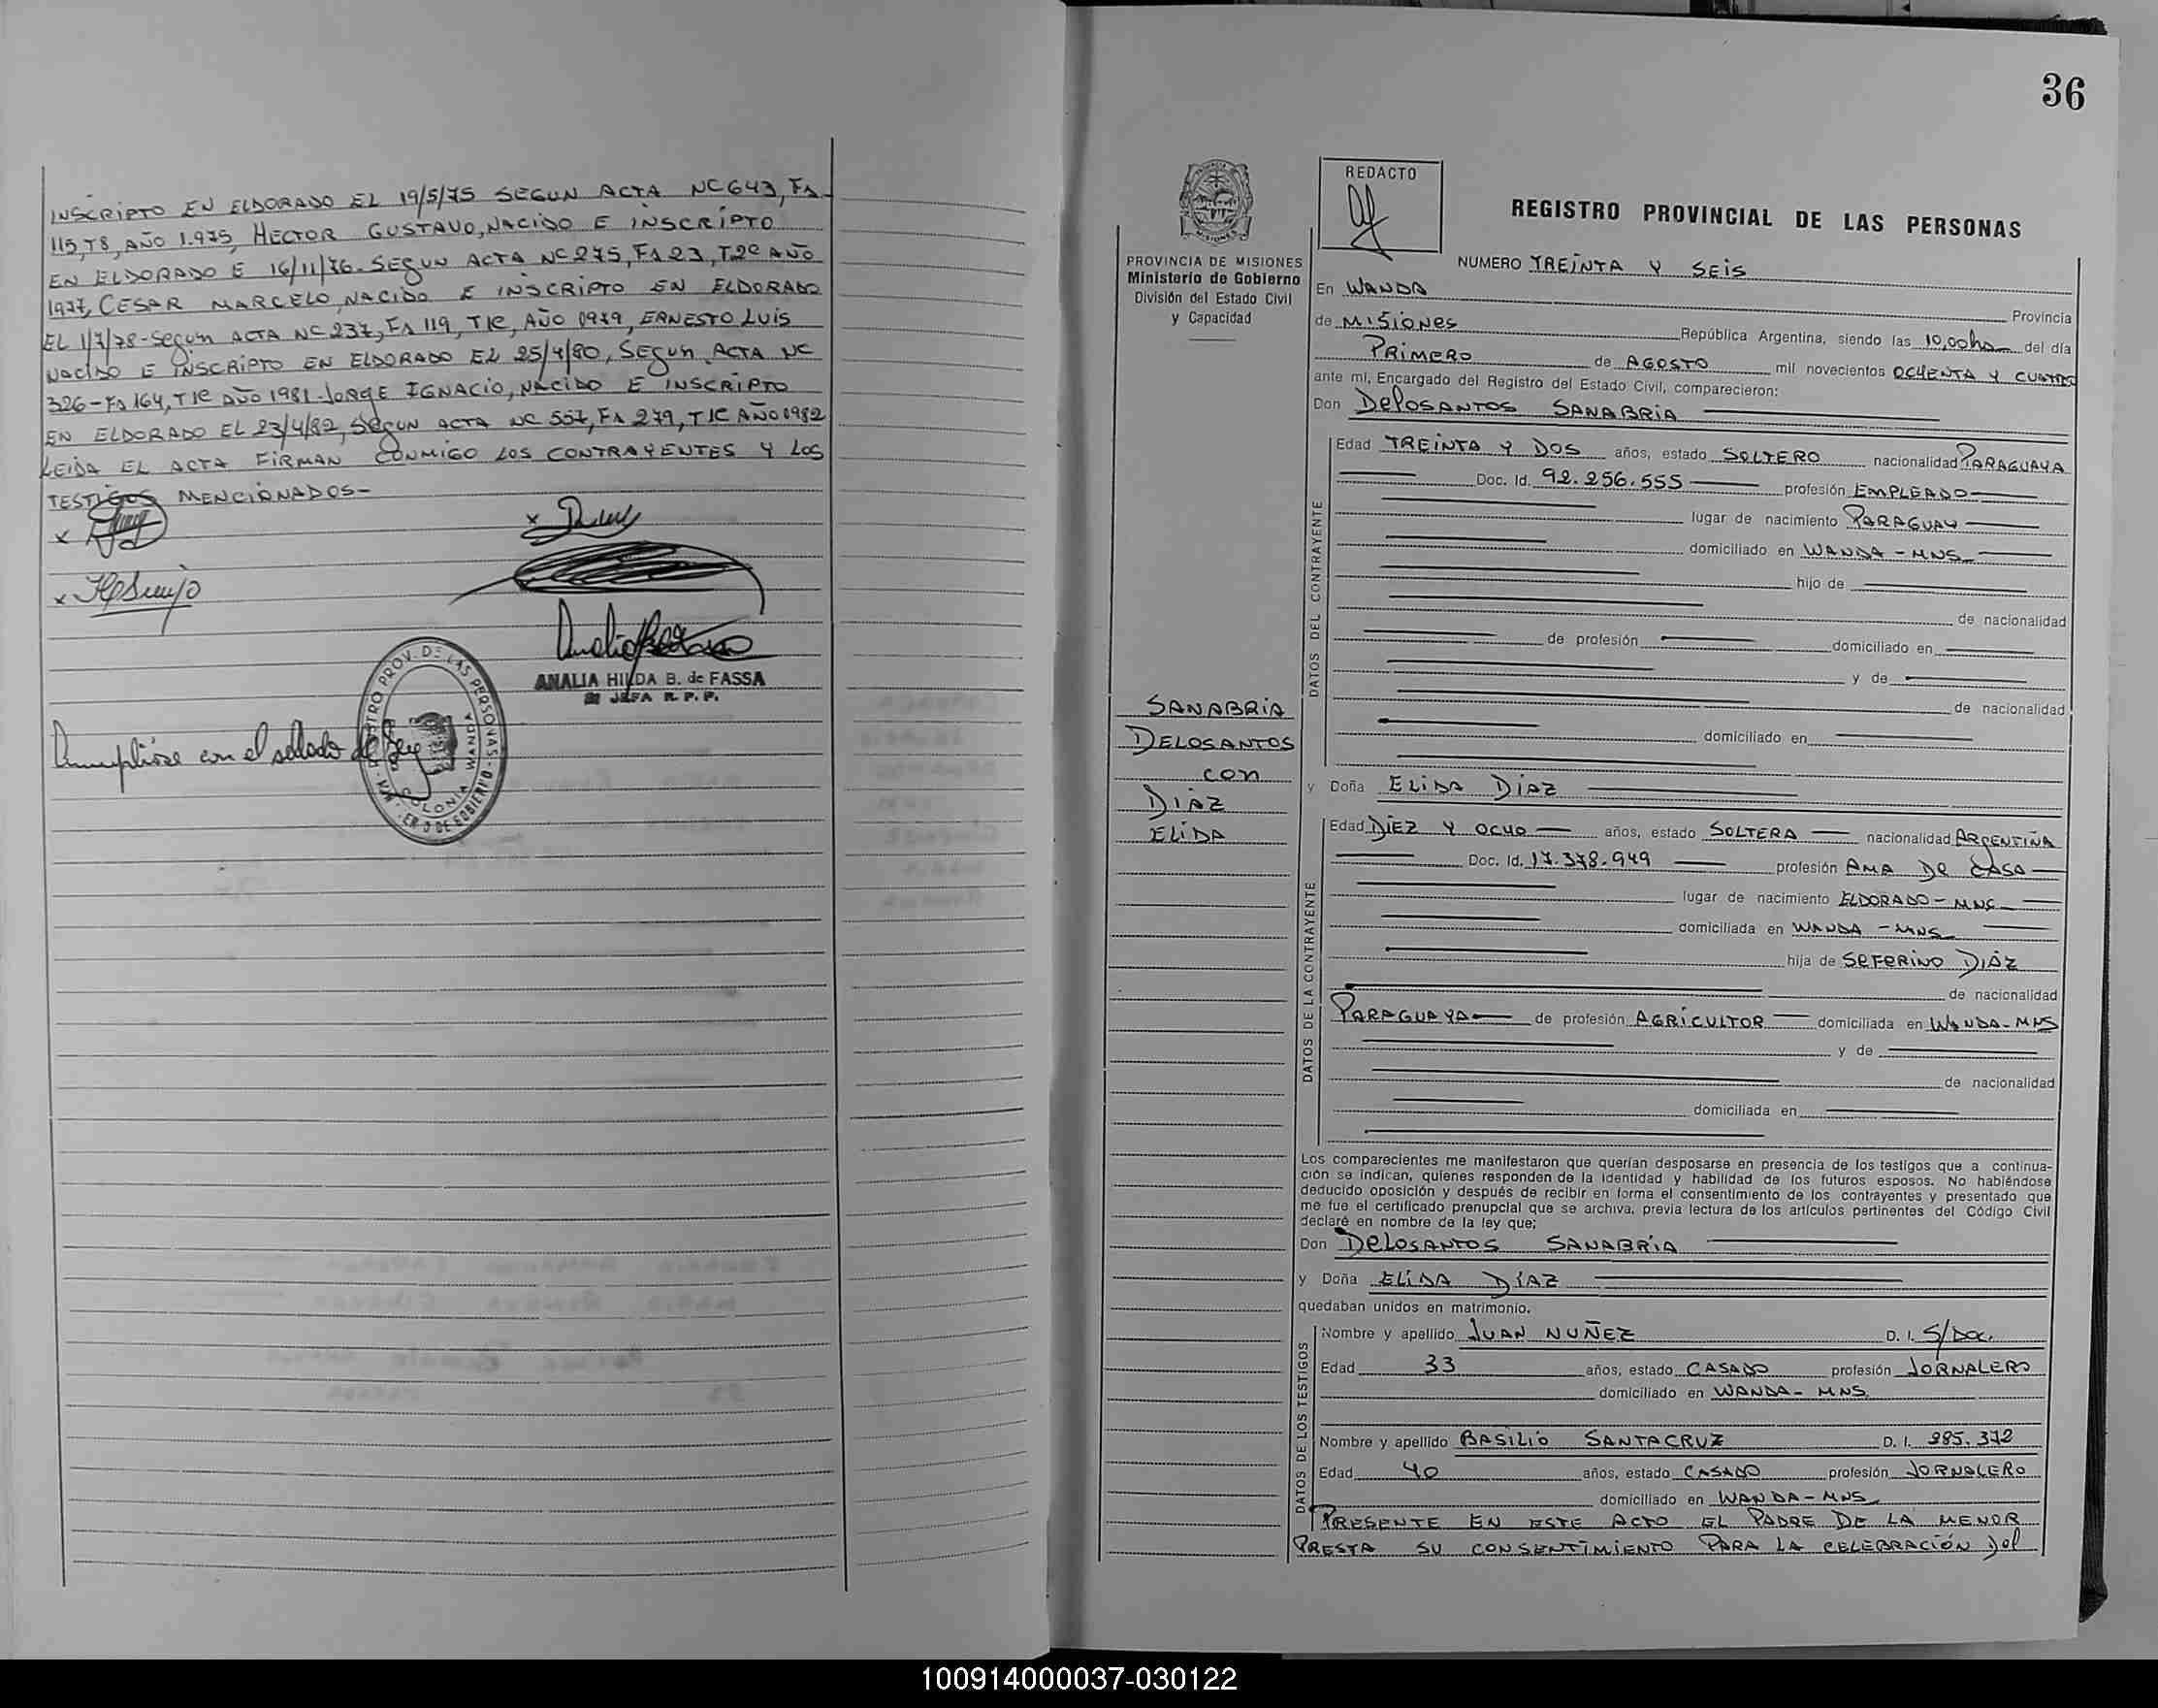 INSCRIPTO EN ELDORADO EL 19/5/75 SEGUN ACTA Nº 643, Fº
115, T8, AÑO 1.975, HECTOR GUSTAVO, NACIDO E INSCRIPTO
EN ELDORADO E 16/11/76. SEGUN ACTA Nº 275, Fº 23, T2º AÑO
1977, CESAR MARCELO, NACIDO E INSCRIPTO EN ELDORADO
EL 1/7/78 - Segun ACTA Nº 237, Fº 119, T1º, AÑO 1979, ERNESTO LUIS
NACIDO E INSCRIPTO EN ELDORADO EL 25/4/80, SEGUN ACTA Nº
326 - Fº 164, T1º AÑO 1981 - JORGE IGNACIO, NACIDO E INSCRIPTO
EN ELDORADO EL 23/4/82, SEGUN ACTA Nº 557, Fº 279, T1º AÑO 1982
LEIDA EL ACTA FIRMAN CONMIGO LOS CONTRAYENTES Y LOS
TESTIGOS MENCIONADOS -
ANALIA HILDA B. de FASSA
JEFA R. P. P.
Cumplióse con el sellado de ley
REGISTRO PROV. DE LAS PERSONAS
COLONIA WANDA
36
REDACTO
REGISTRO PROVINCIAL DE LAS PERSONAS
MISIONES
PROVINCIA DE MISIONES
Ministerio de Gobierno
División del Estado Civil
y Capacidad
NUMERO TREINTA Y SEIS
En WANDA Provincia
de MISIONES República Argentina, siendo las 10,00hs del día
PRIMERO de AGOSTO mil novecientos OCHENTA Y CUATRO
ante mí, Encargado del Registro del Estado Civil, comparecieron:
Don DELOSANTOS SANABRIA
DATOS DEL CONTRAYENTE
Edad TREINTA Y DOS años, estado SOLTERO nacionalidad PARAGUAYA
Doc. Id. 92.256.555 profesión EMPLEADO
lugar de nacimiento PARAGUAY
domiciliado en WANDA - MNS
hijo de
de nacionalidad
de profesión domiciliado en
y de
de nacionalidad
domiciliado en
SANABRIA
DELOSANTOS
con
DIAZ
ELIDA
y Doña ELIDA DIAZ
DATOS DE LA CONTRAYENTE
Edad DIEZ Y OCHO años, estado SOLTERA nacionalidad ARGENTINA
Doc. Id. 17.378.949 profesión AMA DE CASA
lugar de nacimiento ELDORADO - MNS
domiciliada en WANDA - MNS
hija de SEFERINO DIAZ
de nacionalidad
PARAGUAYA de profesión AGRICULTOR domiciliada en WANDA - MNS
y de
de nacionalidad
domiciliada en
Los comparecientes me manifestaron que querían desposarse en presencia de los testigos que a continua-
ción se indican, quienes responden de la identidad y habilidad de los futuros esposos. No habiéndose
deducido oposición y después de recibir en forma el consentimiento de los contrayentes y presentado que
me fue el certificado prenupcial que se archiva, previa lectura de los artículos pertinentes del Código Civil
declaré en nombre de la ley que;
Don DELOSANTOS SANABRIA
y Doña ELIDA DIAZ
quedaban unidos en matrimonio.
DATOS DE LOS TESTIGOS
Nombre y apellido JUAN NUÑEZ D. I. S/DOC.
Edad 33 años, estado CASADO profesión JORNALERO
domiciliado en WANDA - MNS
Nombre y apellido BASILIO SANTACRUZ D. I. 285.372
Edad 40 años, estado CASADO profesión JORNALERO
domiciliado en WANDA - MNS
PRESENTE EN ESTE ACTO EL PADRE DE LA MENOR
PRESTA SU CONSENTIMIENTO PARA LA CELEBRACIÓN Del
100914000037-030122